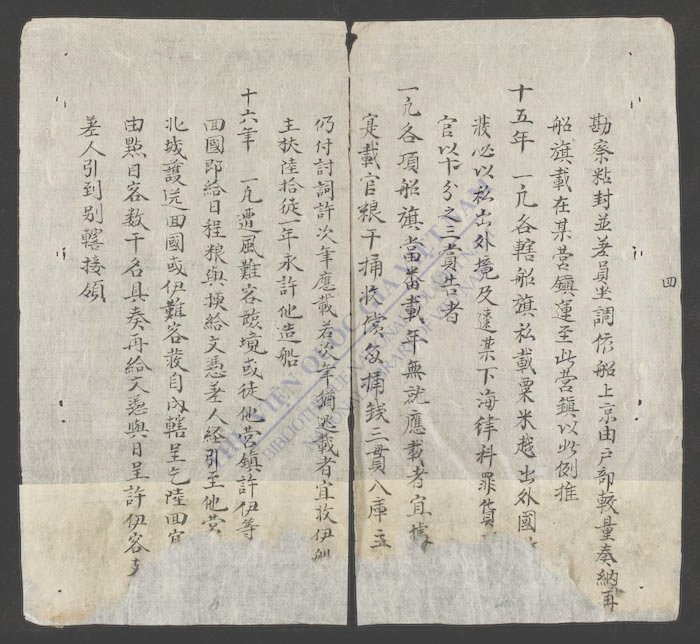 四
勘察粘封並差員坐調依船上京由户部較量奏納再
船旗載在某营鎮運至此营鎮以此例推
十五年 一凢各轄船旗私載粟米越出外國
裝必以私出外境及違禁下海律科罪貨
官以十分之三賞告者
一凢各項船旗當番載年無就應載者宜
寔載官粮干桶收償每桶錢三貫入庫
仍付討詞許次年應載若次年猶逃載者宜收伊船
主扶陸拾徒一年永許他造船
十六年 一凢遭風難客該境或徒他营鎮許伊等
回國即给日程粮與摃給文憑差人経引至他营
北城護送回國或伊難客發自内轄呈乞陸回宜
由㸃目客数干名具奏再給文憑與日呈許伊客
差人引到别轄接領
THƯ VIỆN QUỐC GIA VIỆT NAM
BIBLIOTHÈQUE NATIONALE DU VIETNAM
NATIONAL LIBRARY OF VIETNAM